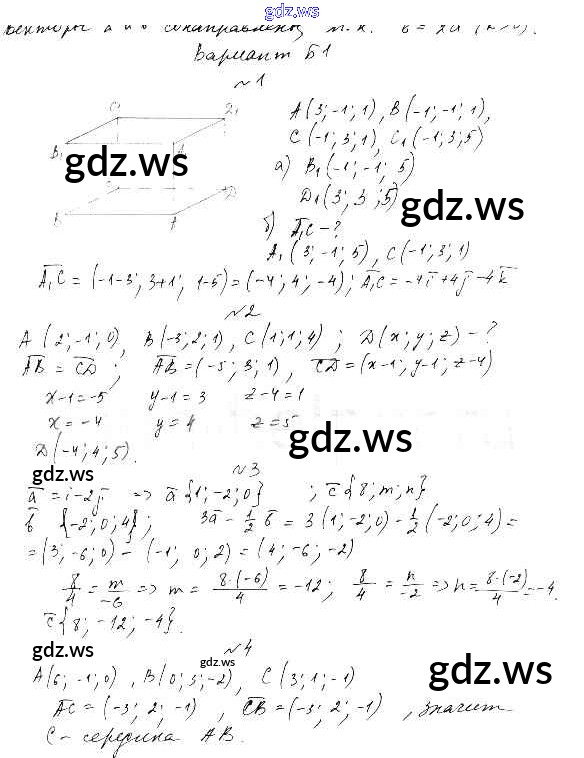 gdz.ws
векторы a и b сонаправлены, т.к. b = 2a (k>0).
Вариант Б1
~1
C₁ D₁
B₁ A₁
B A D
A(3;-1;1), B(-1;-1;1),
C(-1;3;1), C₁(-1;3;5)
а) B₁(-1;-1; 5)
D₁(3; 3; 5)
gdz.ws
gdz.ws
б) A₁C - ?
A₁(3;-1;5), C(-1;3;1)
A₁C = (-1-3; 3+1; 1-5) = (-4; 4; -4); A₁C = -4i+4j-4k
~2
A (2;-1;0), B(-3;2;1), C(1;1;4) ; D(x;y;z) - ?
AB = CD ; AB = (-5; 3; 1), CD = (x-1; y-1; z-4)
x-1=-5 y-1=3 z-4=1
x=-4 y=4 z=5
D(-4;4;5).
gdz.ws
gdz.ws
~3
a = i-2j => a{1;-2;0} ; c{8;m;n}
b {-2;0;4}; 3a - 1/2 b = 3(1;-2;0) - 1/2(-2;0;4) =
= (3;-6;0) - (-1; 0;2) = (4;-6;-2)
8/4 = m/-6 => m = 8·(-6)/4 = -12; 8/4 = n/-2 => n = 8·(-2)/4 = -4.
c{8; -12; -4}.
~4
gdz.ws
gdz.ws
gdz.ws
A(6; -1;0), B(0;3;-2), C(3;1;-1)
AC = (-3; 2; -1), CB = (-3; 2; -1), значит
C - середина AB.
gdz.ws
gdz.ws